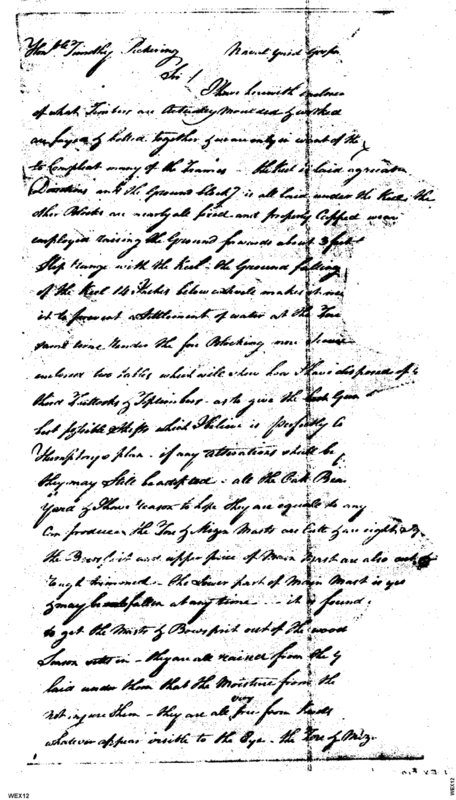 Honble Timothy Pickering Naval Yard Gosp
Sir!
I have herewith enclosed
of what Timbers are Actually Moulded & worked
are fayed & bolted together & we are only in want of the
to Compleat many of the Frames - the Keel is laid agreeable
Directions and the Ground block is all laid under the Keel the
other Blocks are nearly all fixed and properly Capped we are
employed raising the Ground forwards about 3 feet
Slip & ange with the Keel - the Ground falling
of the Keel 14 Inches below makes it
to prevent a Settlement of water at the Fore
same time the fore Blocking more secure
enclosed two Tables which will shew how I have disposed of
third Futtocks & Toptimbers - as to give the Guns
best possible Shifts which I believe is perfectly to
Humphreys plan - if any alterations shall be
they may Still be adopted - all the Oak Bea
Yard & I have reason to hope they are equal to any
Can produce - the Fore & Mizn Masts are Cutt & are eight
the Bowsprit and upper piece of Main Mast are also out
rough trimmed - the Lower part of Main Mast is yet
& may be fallen at any time - it is found
to get the Masts & Bowsprit out of the wood
Season setts in - they are all raised from the G
laid under them that the Moisture from the
not injure them - they are all very free from Knots
whatever appears visible to the Eye - the Fore & Miz
WEX12
WEX12